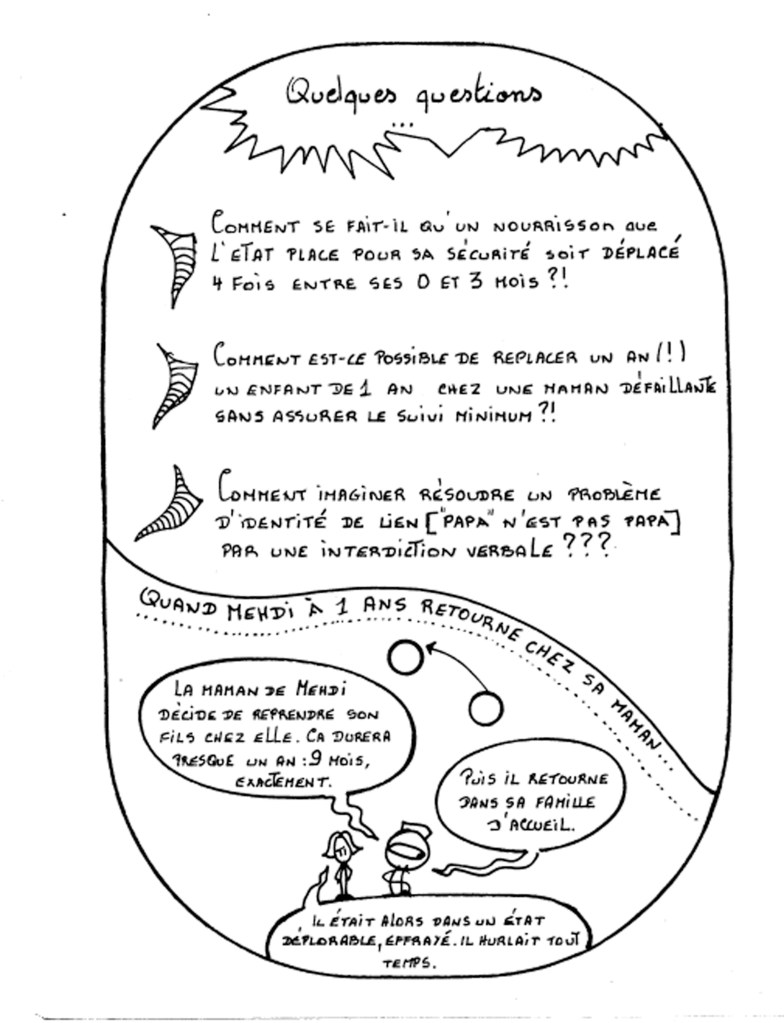 Quelques questions
...
COMMENT SE FAIT-IL QU'UN NOURRISSON QUE
L'ETAT PLACE POUR SA SÉCURITÉ SOIT DÉPLACÉ
4 FOIS ENTRE SES 0 ET 3 MOIS ?!
COMMENT EST-CE POSSIBLE DE REPLACER UN AN (!)
UN ENFANT DE 1 AN CHEZ UNE MAMAN DÉFAILLANTE
SANS ASSURER LE SUIVI MINIMUM ?!
COMMENT IMAGINER RÉSOUDRE UN PROBLÈME
D'IDENTITÉ DE LIEN ["PAPA" N'EST PAS PAPA]
PAR UNE INTERDICTION VERBALE ???
QUAND MEHDI À 1 ANS RETOURNE CHEZ SA MAMAN...
LA MAMAN DE MEHDI
DÉCIDE DE REPRENDRE SON
FILS CHEZ ELLE. CA DURERA
PRESQUE UN AN : 9 MOIS,
EXACTEMENT.
PUIS IL RETOURNE
DANS SA FAMILLE
D'ACCUEIL.
IL ÉTAIT ALORS DANS UN ÉTAT
DÉPLORABLE, EFFRAYÉ. IL HURLAIT TOUT
TEMPS.